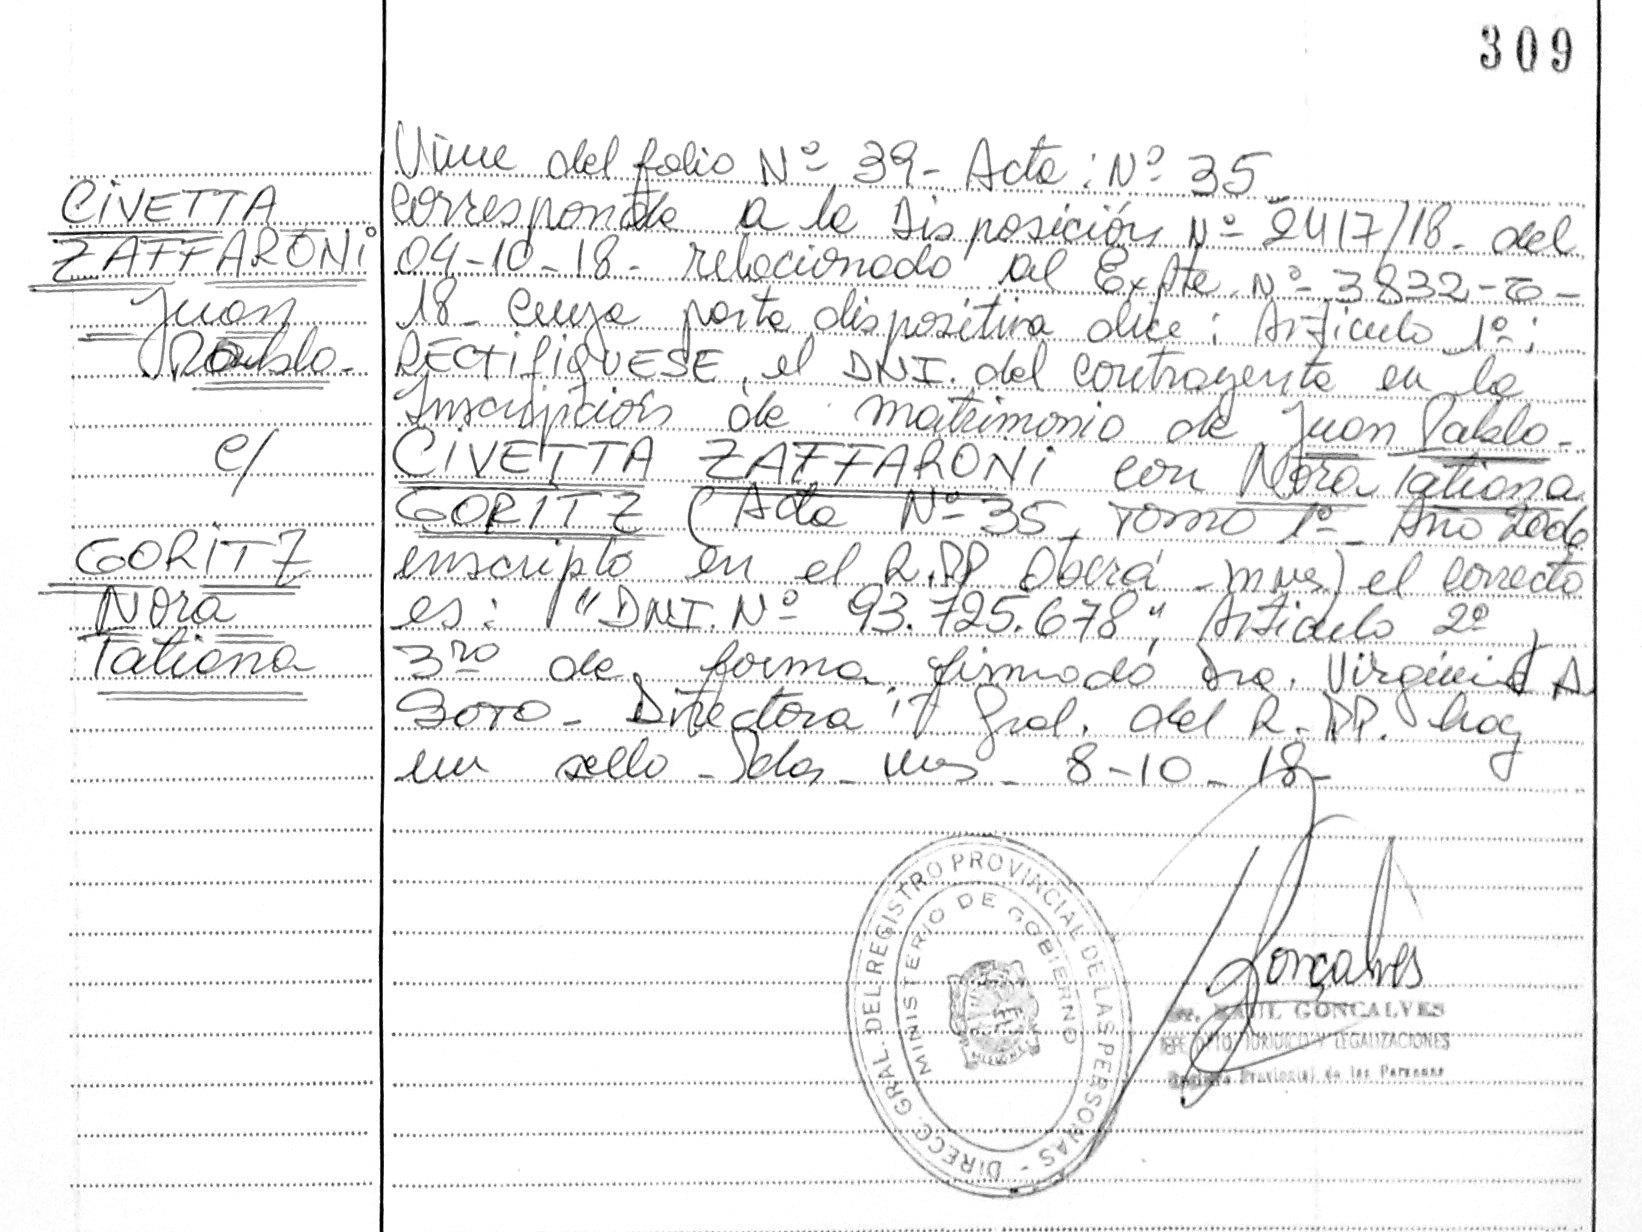 309
Viene del folio Nº 39- Acta: Nº 35
CIVETTA
ZAFFARONI
Juan
Pablo-
c/
GORITZ
Nora
Tatiana
corresponde a la Disposición Nº 2417/18- del
04-10-18- relacionado al Expte. Nº 3832-
18- cuya parte dispositiva dice: Artículo 1º:
RECTIFIQUESE, el DNI. del contrayente en la
Inscripción de matrimonio de Juan Pablo-
CIVETTA ZAFFARONI con Nora Tatiana
GORITZ (Acta Nº 35, Tomo 1º- Año 2006
inscripto en el R.PP Oberá -mnes) el correcto
es: "DNI. Nº 93.725.678", Artículo 2º y
3ro de forma, firmado Dra. Virginia A.
SOTO- Directora Gral. del R.PP. hay
un sello- Pdas- Mnes- 8-10-18-
DIRECC. GRAL. DEL REGISTRO PROVINCIAL DE LAS PERSONAS -
MINISTERIO DE GOBIERNO
MISIONES
Gonçalves
Dr. RAUL GONCALVES
JEFE DPTO. JURIDICO Y LEGALIZACIONES
Registro Provincial de las Personas